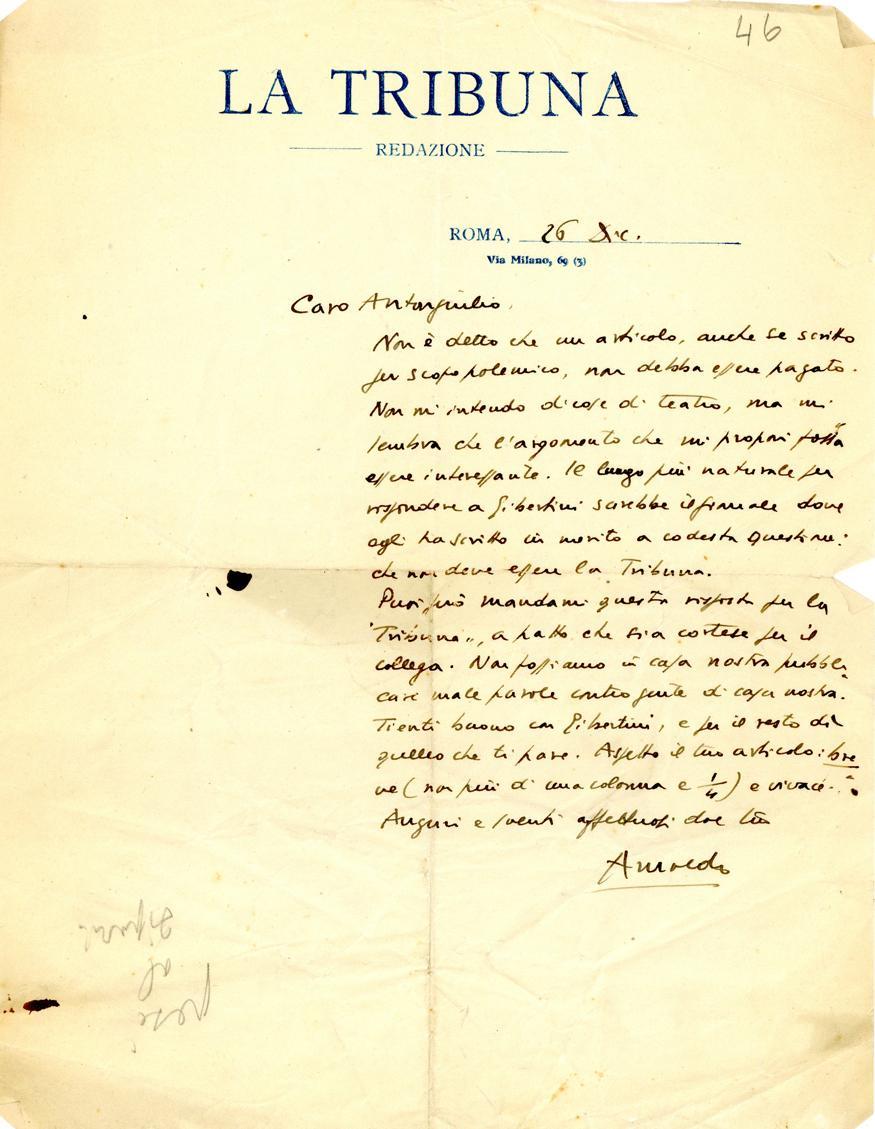 46
LA TRIBUNA
REDAZIONE
ROMA, 26 Dic.
Via Milano, 69 (3)
Caro Antongiulio,
Non è detto che un articolo, anche se scritto
per scopo polemico, non debba essere pagato.
Non mi intendo di cose di teatro, ma mi
sembra che l'argomento che mi proponi possa
essere interessante. Il luogo più naturale per
rispondere a Gibertini sarebbe il giornale dove
egli ha scritto in merito a codesta questione:
che non deve essere la Tribuna.
Puoi però mandarmi questa risposta per la
"Tribuna", a patto che sia cortese per il
collega. Non possiamo in casa nostra pubbli-
care male parole contro gente di casa nostra.
Tienti buono con Gibertini, e per il resto di'
quello che ti pare. Aspetto il tuo articolo: bre
ve (non più di una colonna e 1/4) e vivace.
Auguri e saluti affettuosi dal tuo
Arnaldo